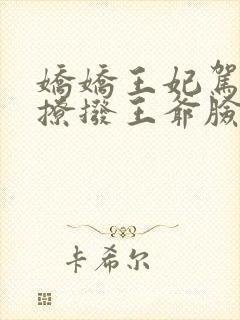 嬌嬌王妃駕
撩撥王爺臉
卡希尔